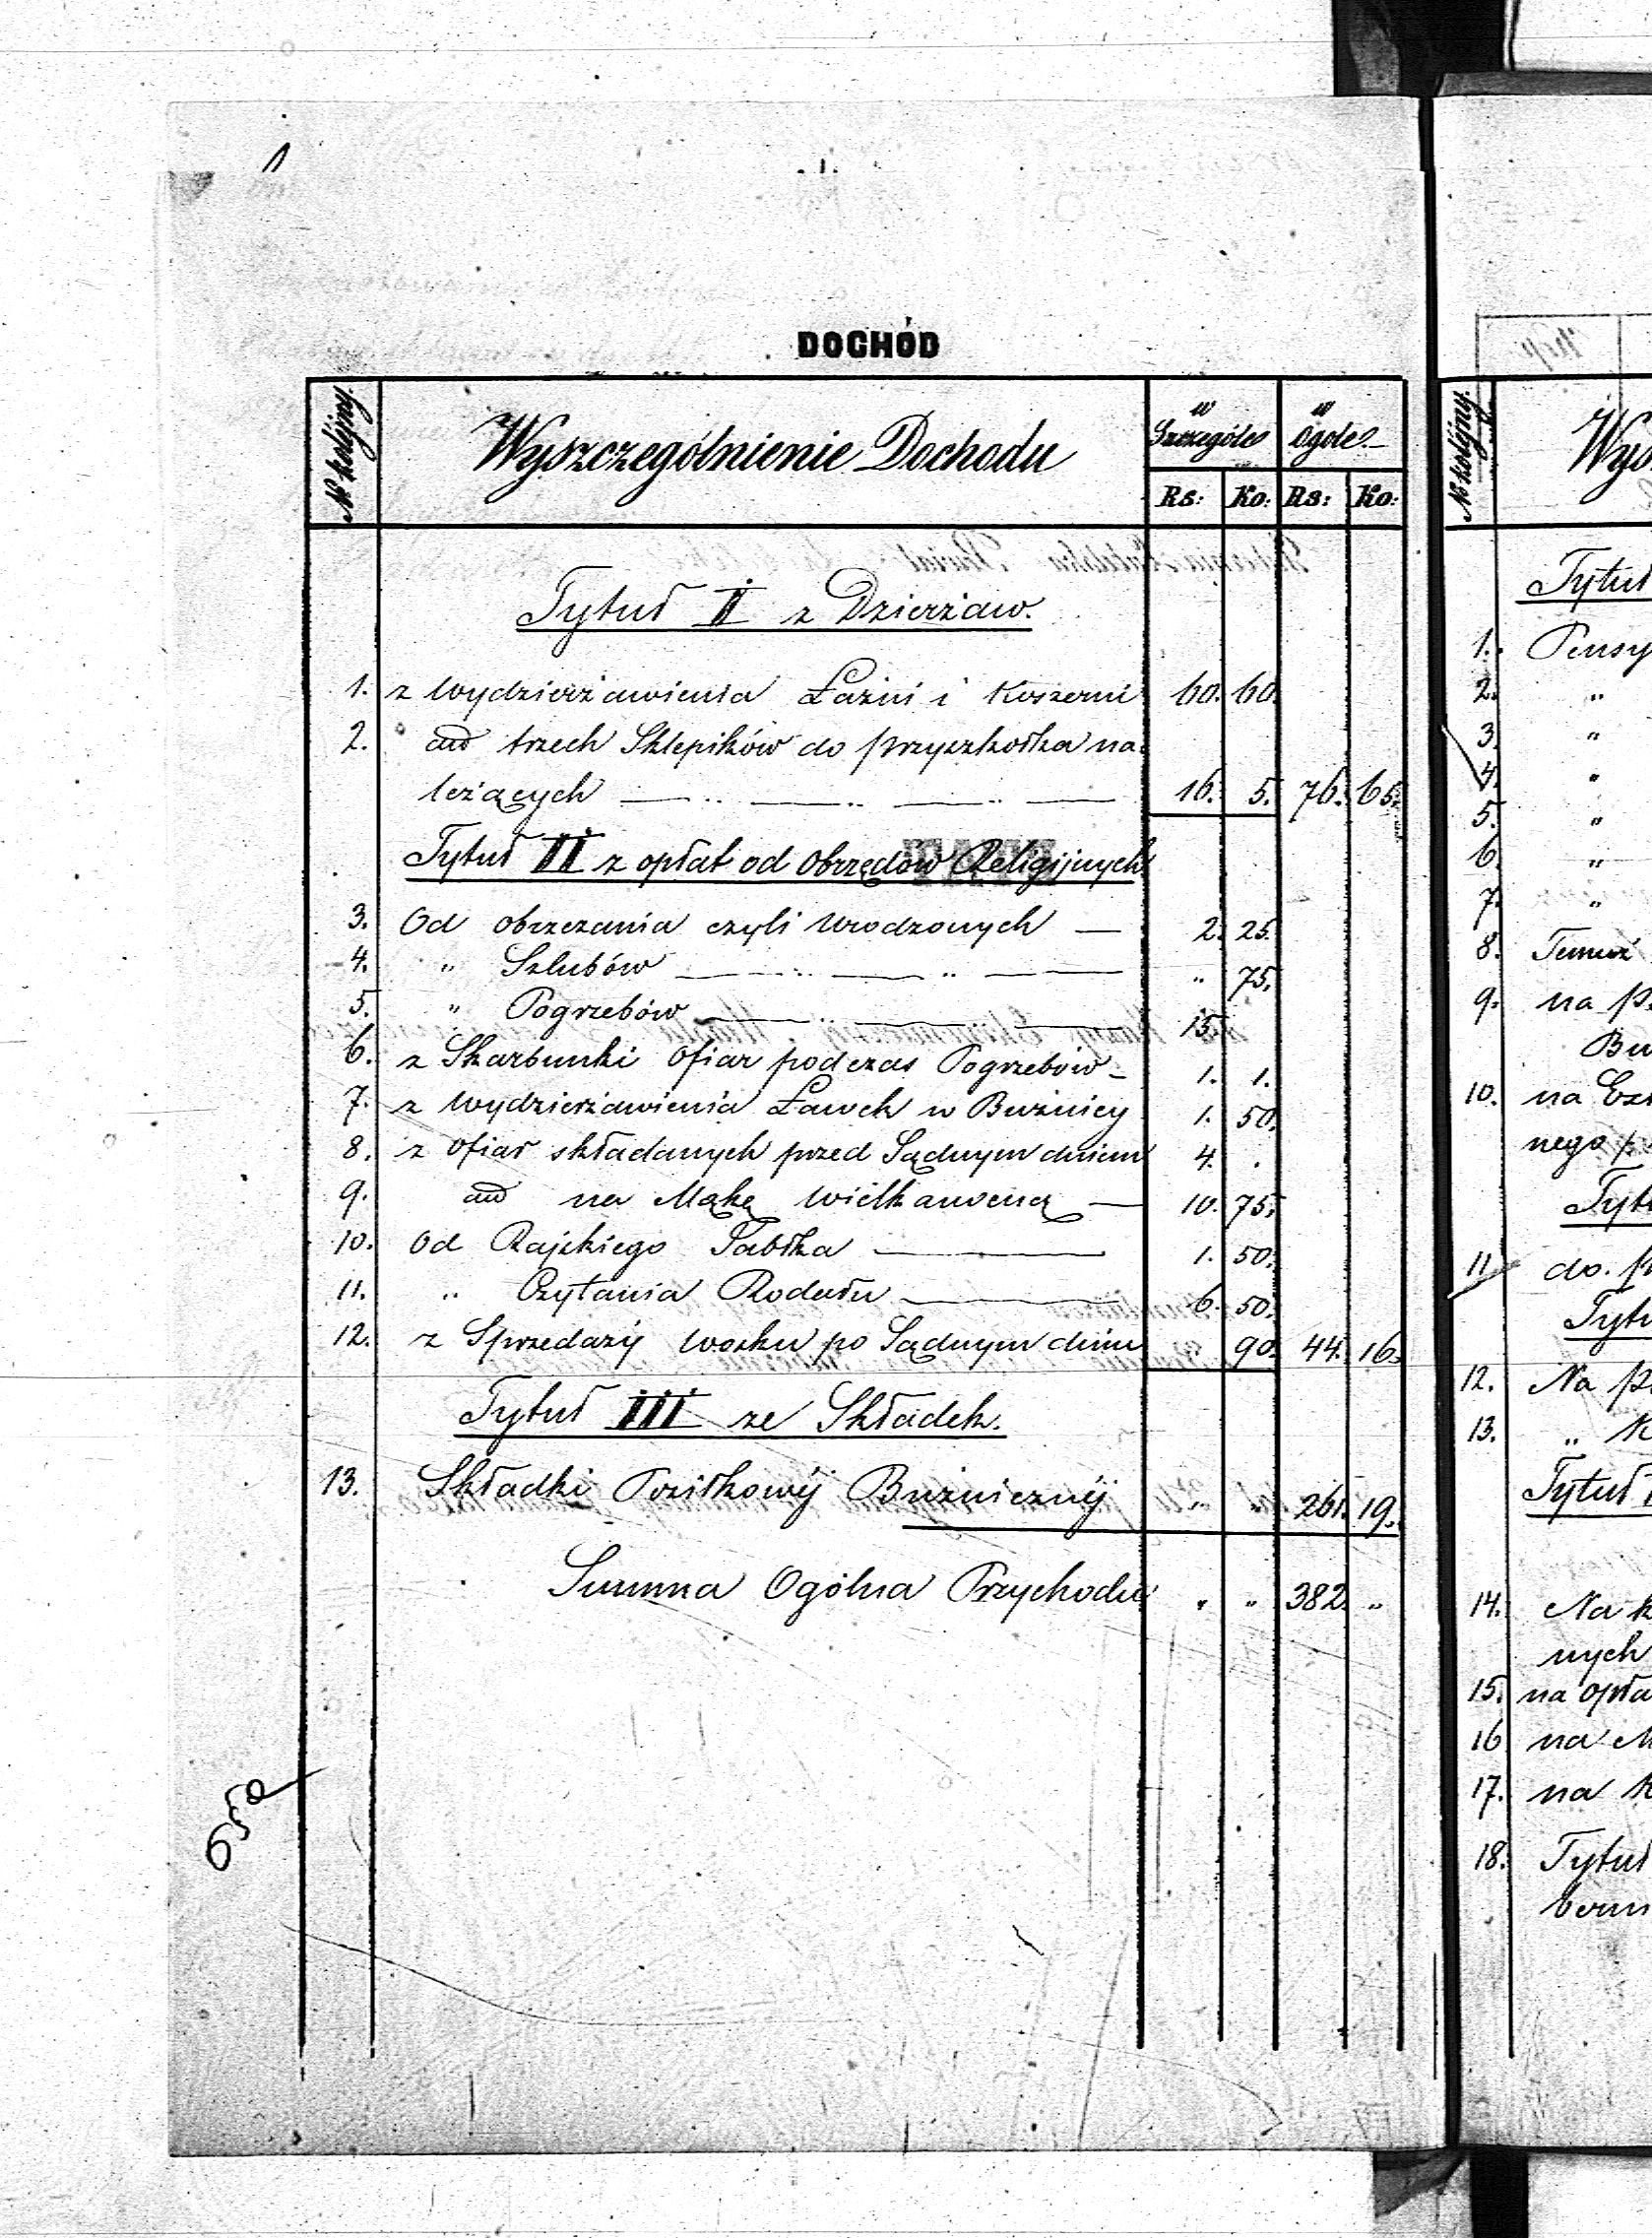 1
. 1.
DOCHÓD
№ kolejny.
Wyszczególnienie Dochodu
w Szczególe
w Ogóle
Rs: Ko: Rs: Ko:
Tytuł I z Dzierżaw.
1. z Wydzierżawienia Łaźni i Koszerni 60. 60.
2. trzech Sklepików do przyszkołka na
leżących 16. 5. 76. 65.
Tytuł II z opłat od Obrzędów Religijnych
3. Od obrzezania czyli Urodzonych — 2. 25.
4. " Szlubów " 75.
5. " Pogrzebów 15.
6. z Skarbunki Ofiar podczas Pogrzebów – 1. 1.
7. z Wydzierżawienia Ławek w Bużnicy 1. 50.
8. z Ofiar składanych przed Sądnym dniem 4. .
9. na Mąkę Wielkanocną — 10. 75.
10. Od Rajskiego Jabłka — 1. 50.
11. " Czytania Rodału — 6. 50.
12. z Sprzedaży Wosku po Sądnym dniu " 90. 44. 16.
Tytuł III ze Składek.
13. Składki Bużniczny " " 261. 19.
Summa Ogólna Przychodu " " 382. "
№ kolejny.
Wys
Tytuł
1. Pensy
2. "
3. "
4. "
5. "
6. "
7. "
8.
9. na p
Bu
10. na
nego
Tyt
11. do. p
Tytu
12. Na p
13. " K
Tytuł
14. Na k
nych
15. na opła
16 na M
17. na K
18. Tytuł